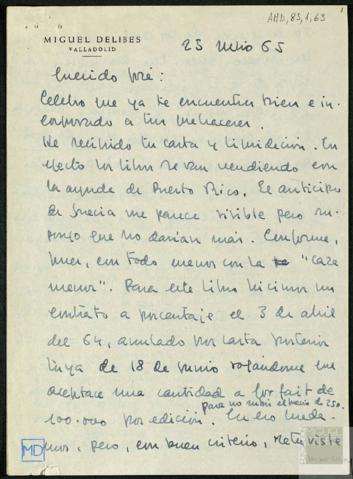 AMD, 83, 1, 63
MIGUEL DELIBES
VALLADOLID
23 julio 65
Querido José:
Celebro que ya te encuentres bien e in-
corporado a tus quehaceres.
He recibido tu carta y liquidación. En
efecto los libros se van vendiendo con
la ayuda de Puerto Rico. El anticipo
de Suecia me parece risible pero su-
pongo que no darían más. Conforme,
pues, con todo menos con la "caza
menor". Para este libro hicimos un
contrato a porcentaje el 3 de abril
del 64, anulado por carta posterior
tuya de 18 de junio rogándome que
aceptase una cantidad a forfait de
para no subir el precio de 250.
100.000 por edición. En eso queda-
mos, pero, con buen criterio, retuviste
MD